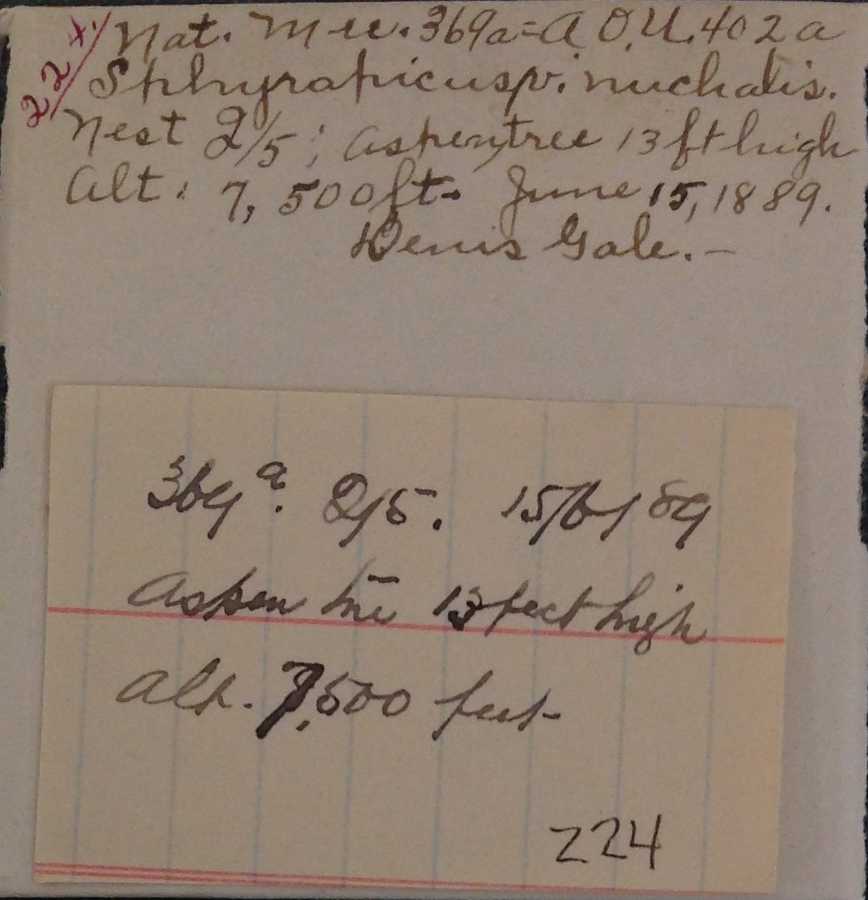 224.
Nat. Mu. 369a = A.O.U. 402a
Sphyrapicus v. nuchalis.
Nest 2/5; aspen tree 13 ft high
Alt. 7,500 ft. June 15, 1889.
Denis Gale. —
369a. 2/5. 15/6/89
Aspen tree 13 feet high
Alt. 7,500 feet
224